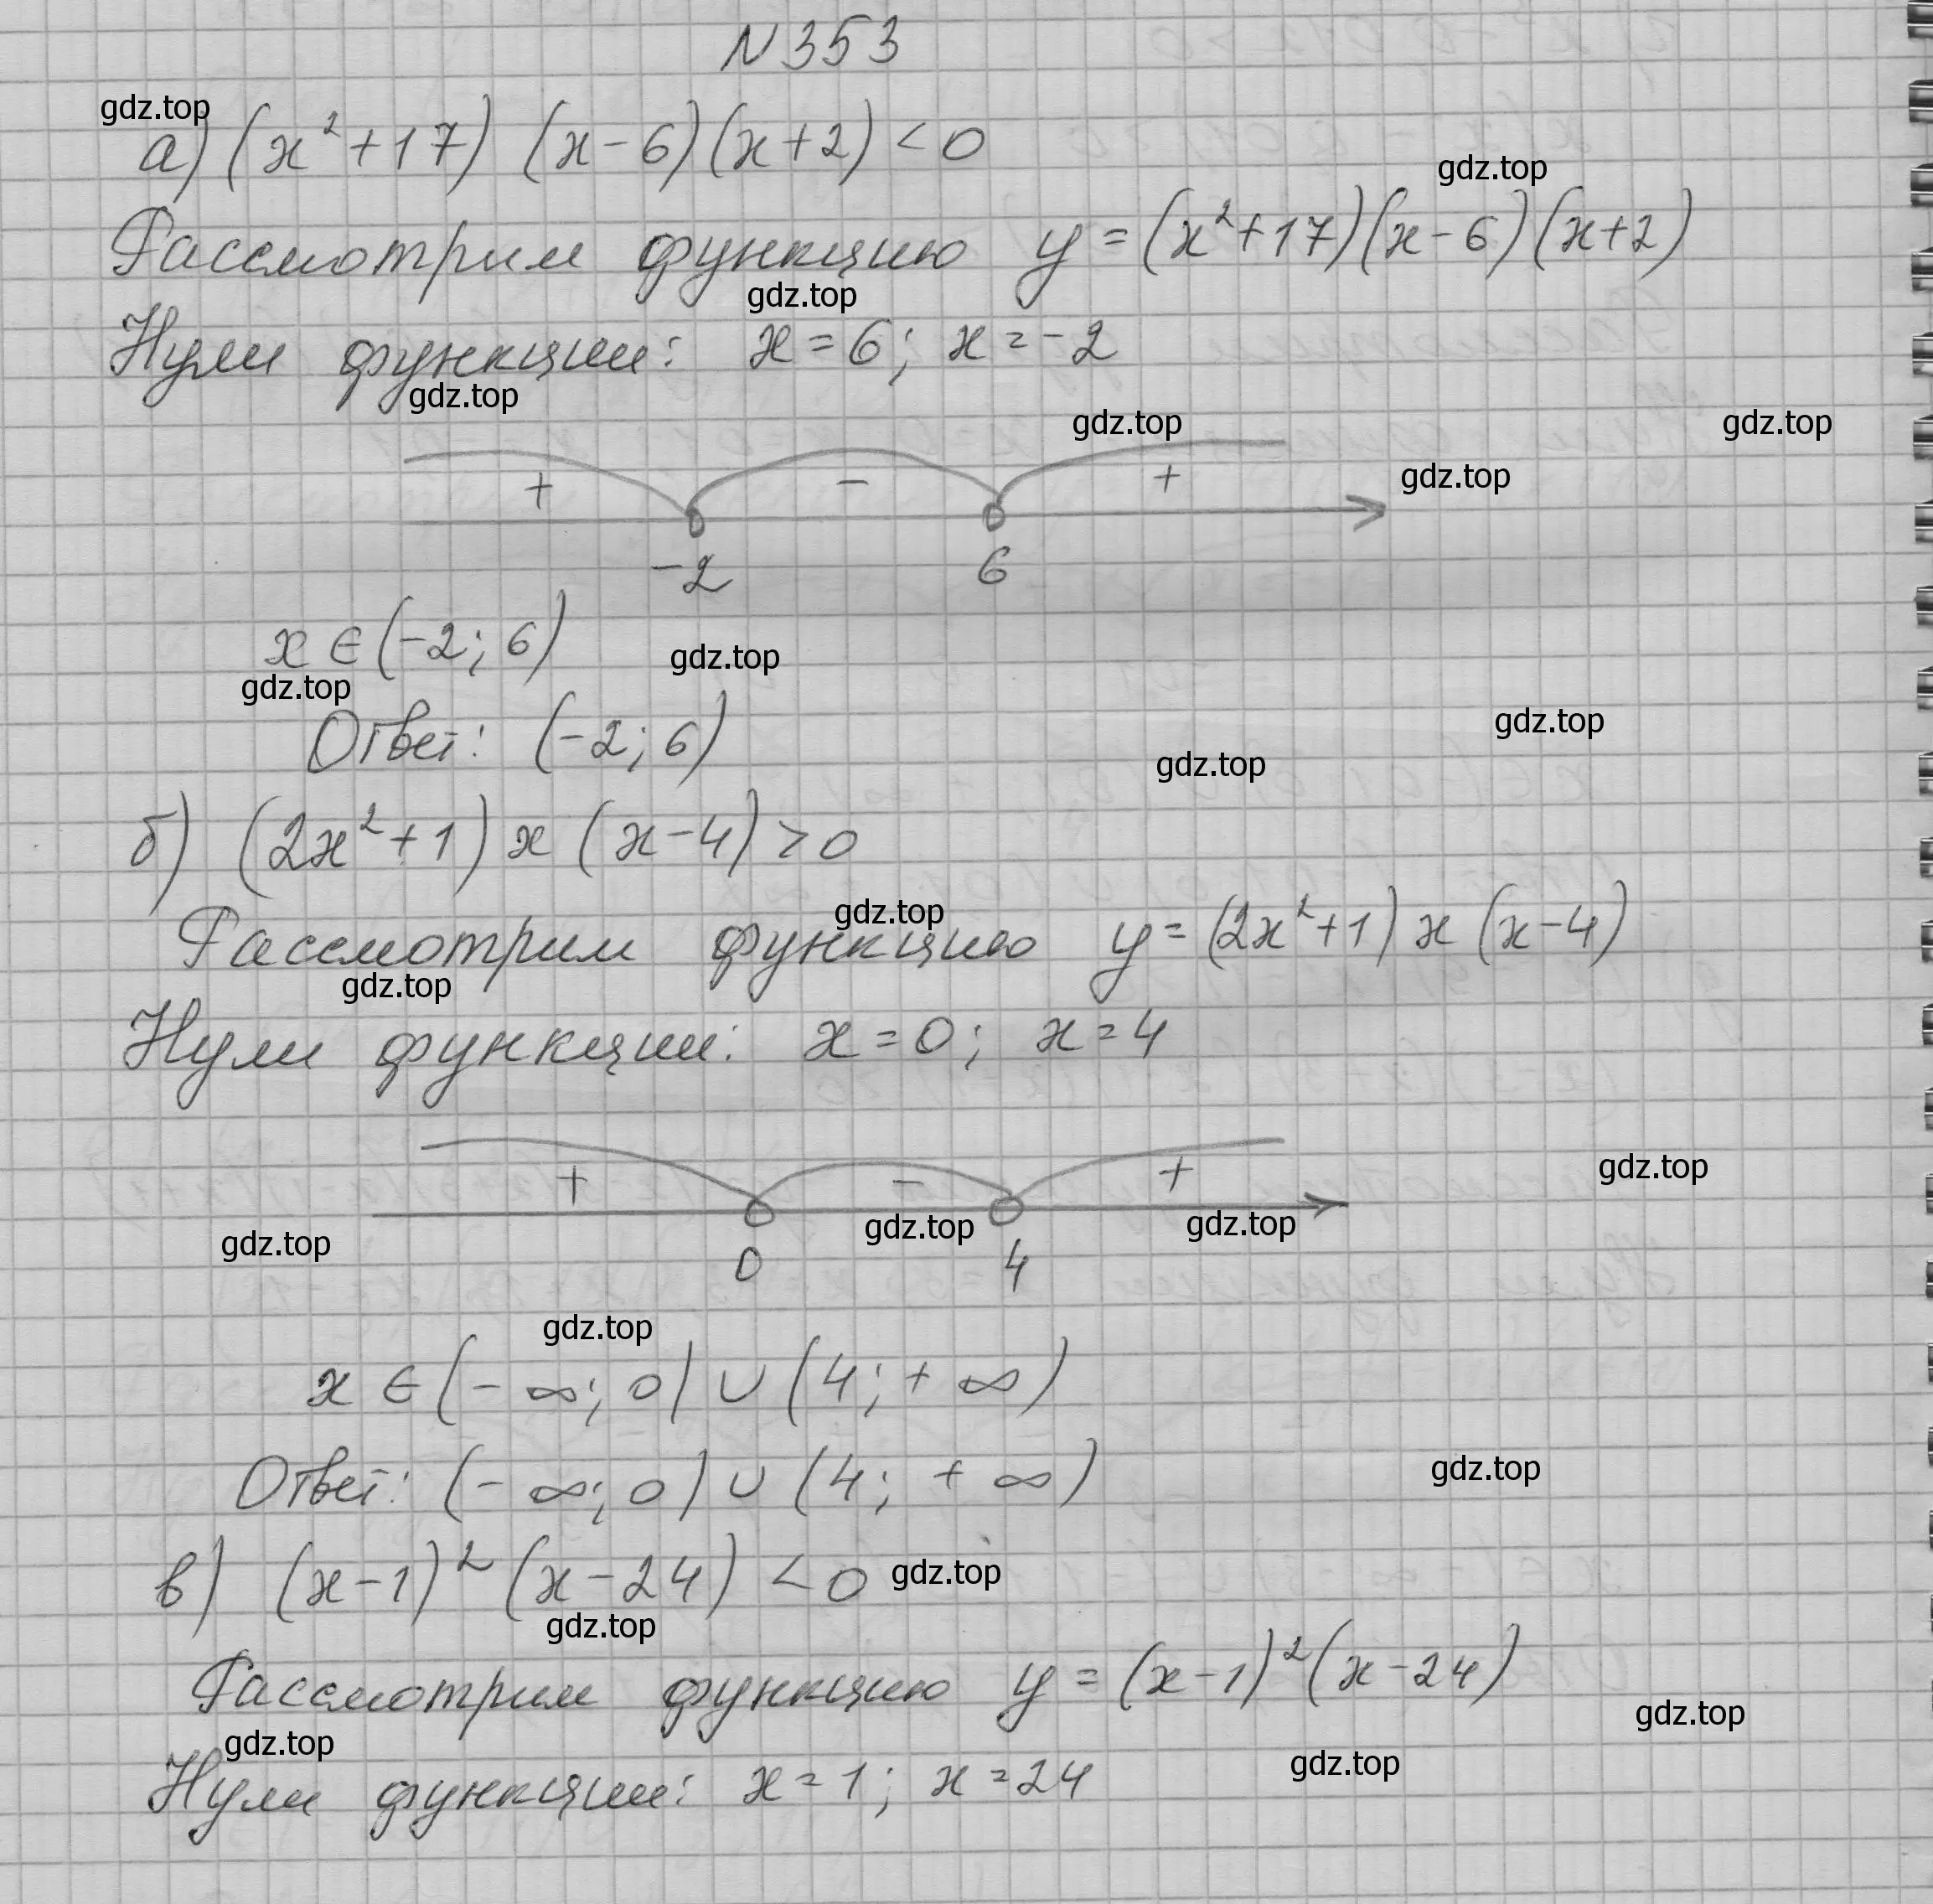 N 353
gdz.top
а) (x²+17) (x-6)(x+2) < 0
gdz.top
Рассмотрим функцию y = (x²+17)(x-6)(x+2)
gdz.top
Нули функции: x = 6; x = -2
gdz.top
gdz.top
gdz.top
+ - +
gdz.top
-2 6
x ∈ (-2; 6)
gdz.top
gdz.top
Ответ: (-2; 6)
gdz.top
gdz.top
б) (2x²+1) x (x-4) > 0
gdz.top
Рассмотрим функцию y = (2x²+1) x (x-4)
gdz.top
Нули функции: x = 0; x = 4
+ - +
gdz.top
gdz.top
gdz.top
gdz.top
0 4
gdz.top
x ∈ (-∞; 0) ∪ (4; +∞)
Ответ: (-∞; 0) ∪ (4; +∞)
gdz.top
в) (x-1)² (x-24) < 0
gdz.top
gdz.top
Рассмотрим функцию y = (x-1)²(x-24)
gdz.top
gdz.top
Нули функции: x = 1; x = 24
gdz.top